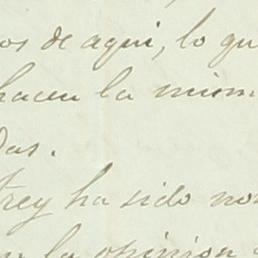 os de aqui, lo qu
hacen la mism
das.
rey ha sido no
la opinion